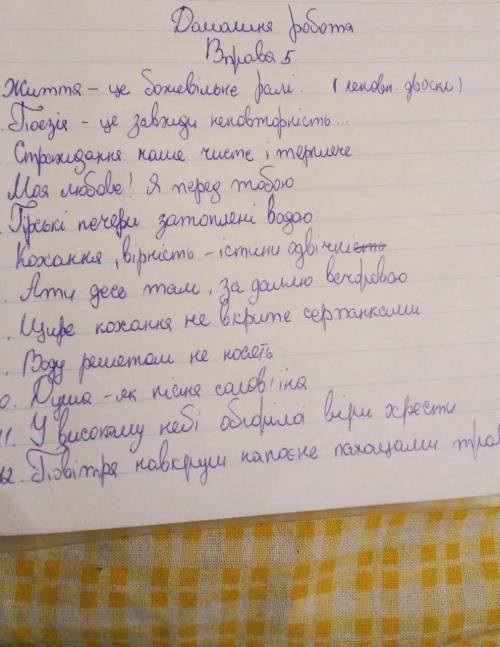 Домашня робота
Вправа 5
Життя – це божевільне ралі. (неповн. двоскл)
Поезія – це завжди неповторність...
Страждання наше чисте і терпляче
Моя любове! Я перед тобою
Гірські печери затоплені водою
Кохання, вірність – істини одвічні
А ти десь там, за даллю вечоровою
Щире кохання не вкрите серпанками
Воду решетом не носять
0. Душа – як пісня солов'їна
11. У високому небі обгорілої віри хрести
12. Повітря навкруги напоєне пахощами трав